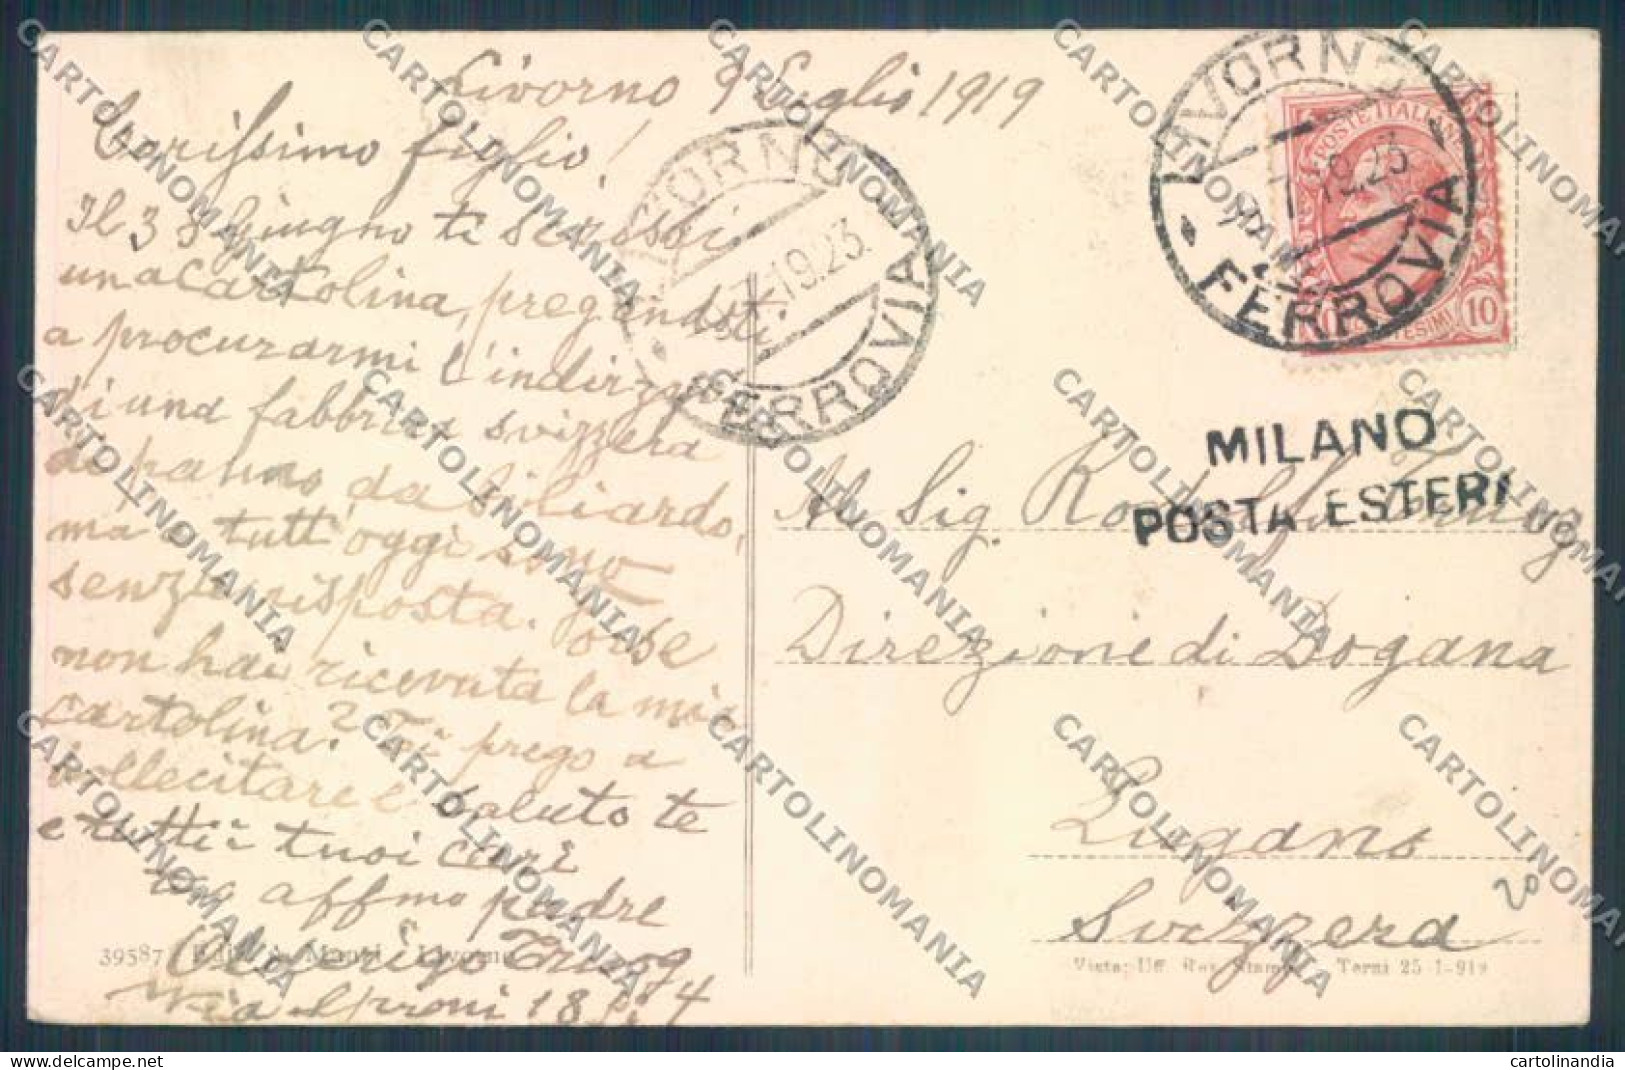 Livorno 9 Luglio 1919
Carissimo figlio!
Il 33 Giugno te scrissi
una cartolina, pregandoti
a procurarmi l'indirizzo
di una fabbrica svizzera
di panno da biliardo,
ma a tutt'oggi sono
senza risposta. Forse
non hai ricevuta la mia
cartolina? Ti prego a
sollecitare e saluto te
e tutti i tuoi cari
affmo padre
Via 18
39587
LIVORNO
FERROVIA
19.23
LIVORNO
FERROVIA
7.19.23
POSTE ITALIANE
10
CENTESIMI
MILANO
POSTA ESTERI
Al Sig.
Direzione di Dogana
Lugano
Svizzera
Visto: Uff. Rev. Stampa Terni 25-1-919
CARTOLINOMANIA
cartolinandia